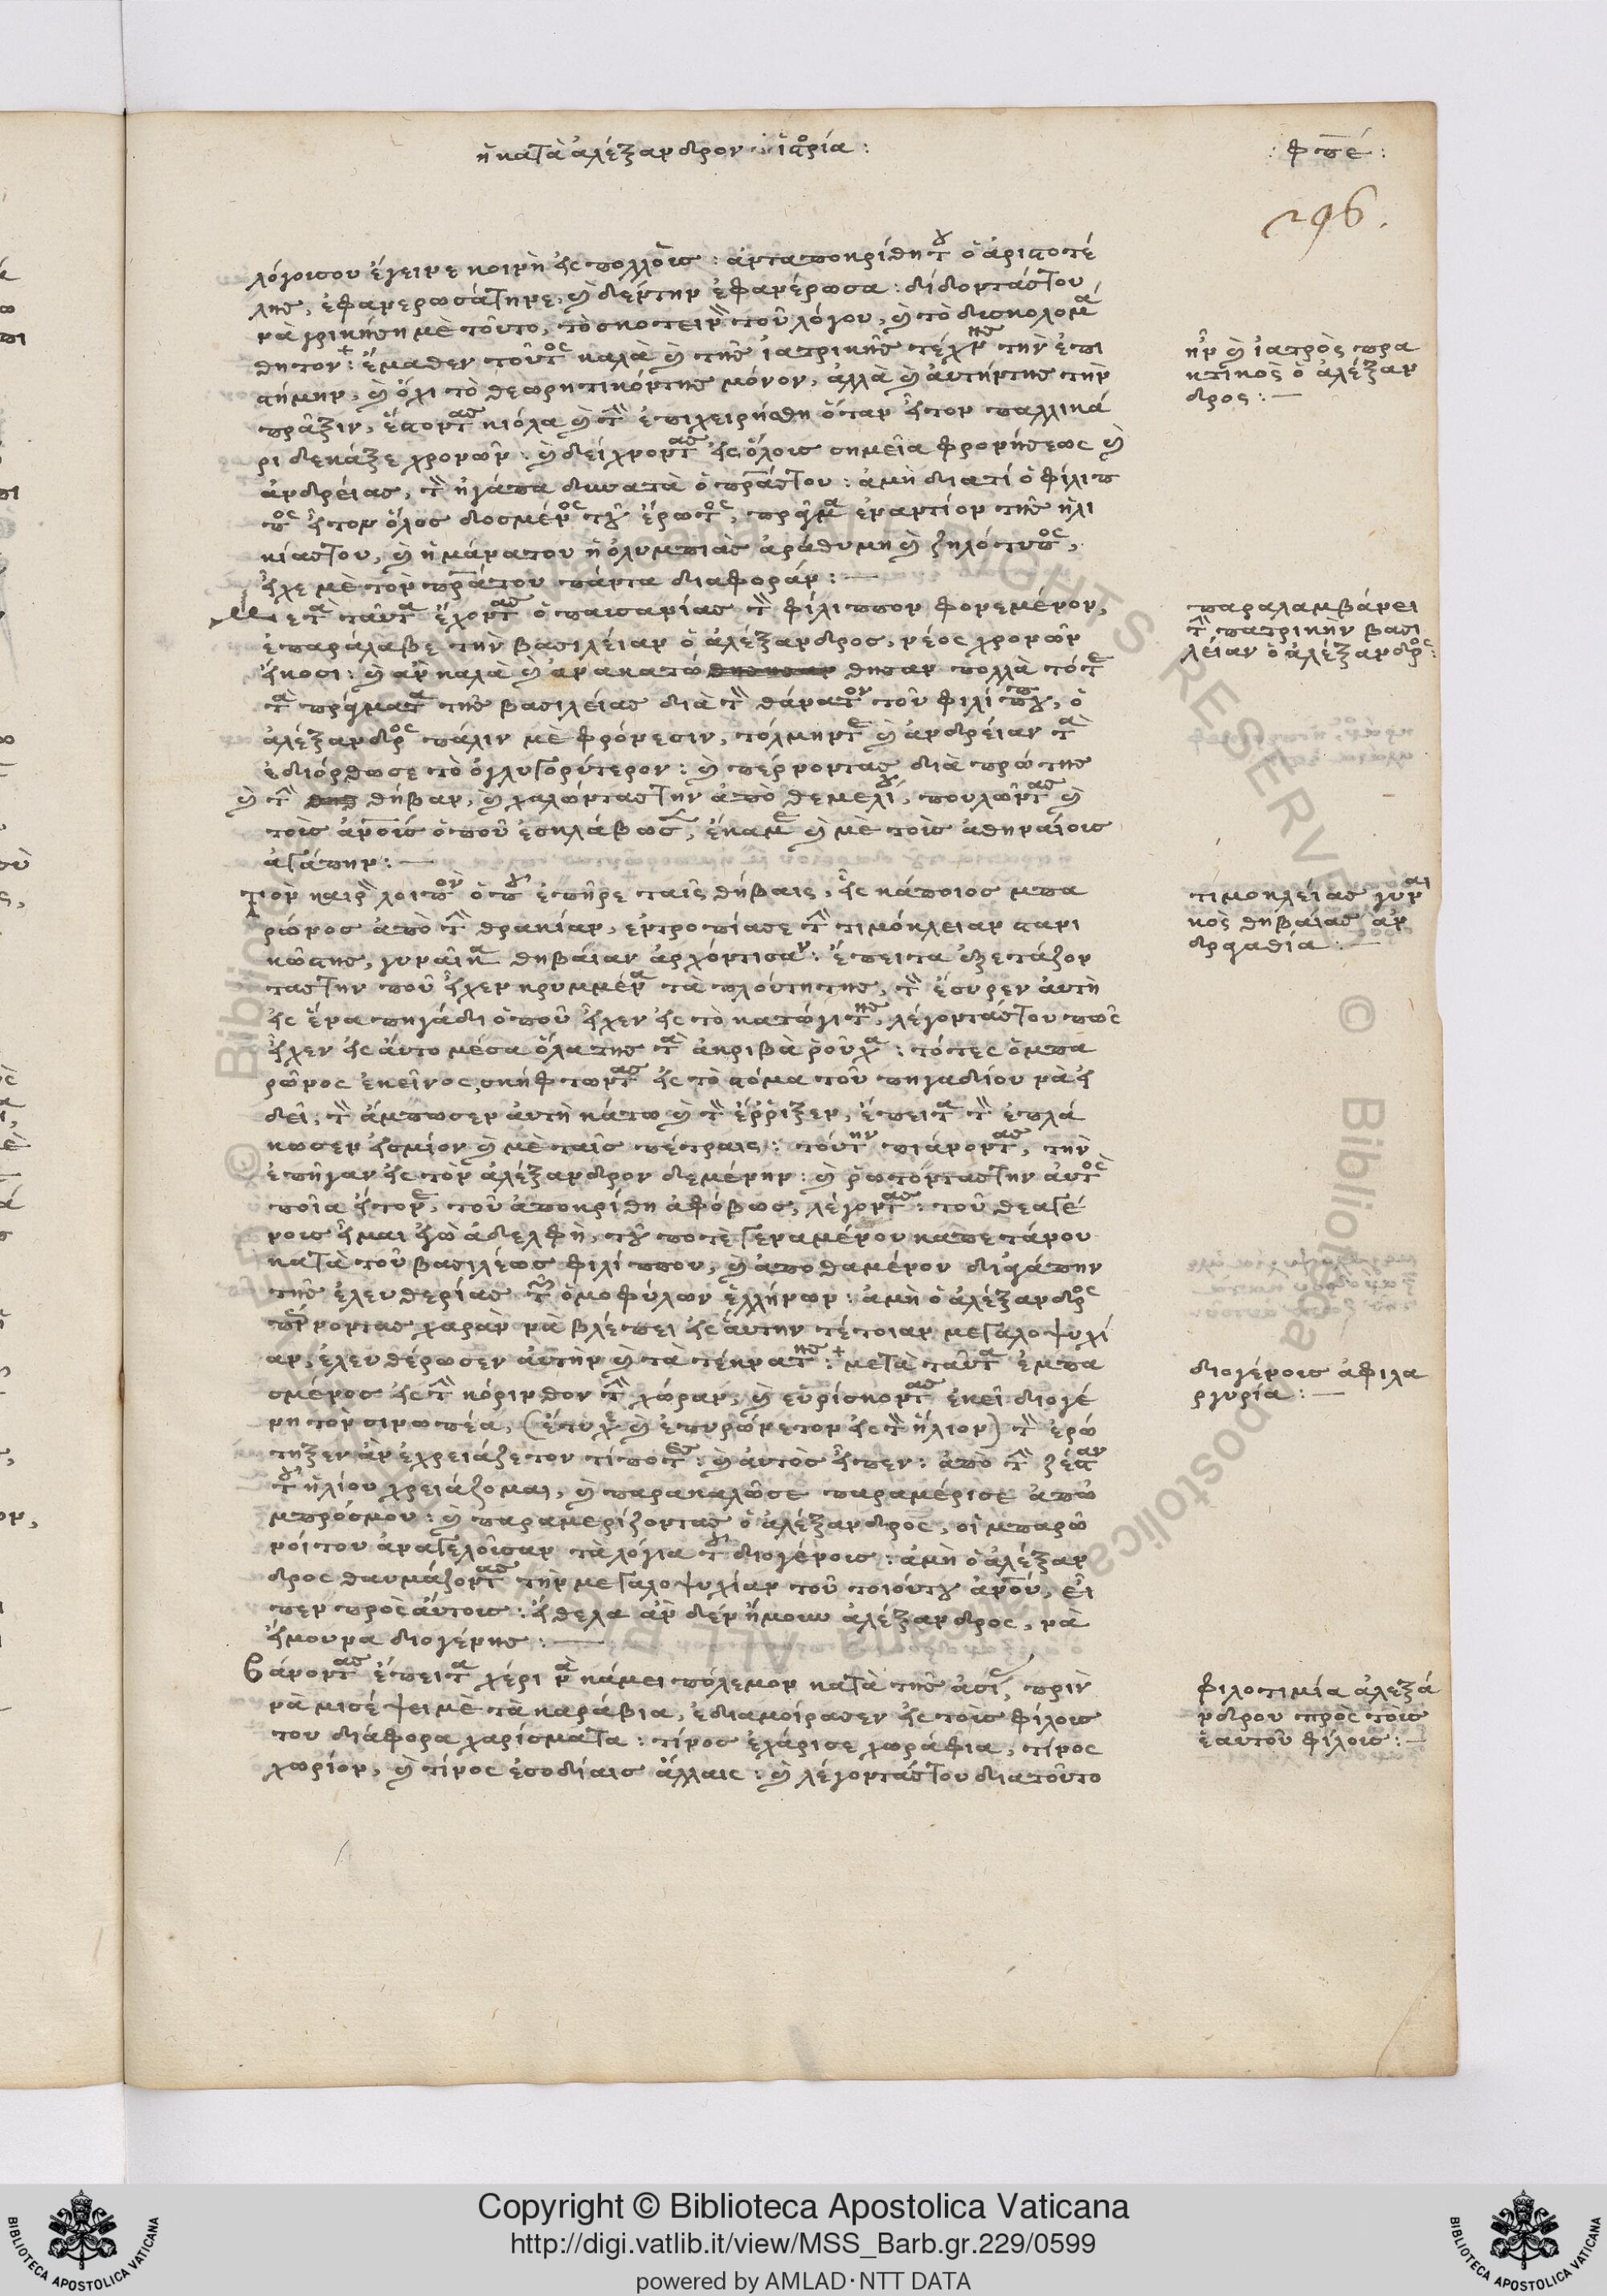 ἡ κατὰ ἀλέξανδρον ἱστορία:
: φπέ :
296.
λόγοισου ἔγεινε κοινὴ εἰς πολλοὺς : ἀνταποκρίθη τ ὁ ἀριστοτέ
λης, ἐφανερωσάτηνε, καὶ δέντην ἐφανέρωσα : δίδοντάςτου
νὰ γρικήση μὲ τοῦτο, τὸ σκοτεινὸ τοῦ λόγου, καὶ τὸ δισκολομά
θητον : ἔμαθεν τοῦτος καλὰ καὶ τῆς ἰατρικῆς τέχνης τὴν ἐπι
στήμην, καὶ ὄχι τὸ θεωρητικόντης μόνον, ἀλλὰ καὶ ἀυτήντης τὴν
πρᾶξιν, ἔστοντας κιόλα καὶ τὸ ἐπιχειρήσθη ὅταν ἦτον παλλικά
ρι δεκάξε χρονῶν : καὶ δείχνοντας εἰς ὅλοις σημεῖα φρονήσεως καὶ
ἀνδρείας, τὸν ἠγάπα δυνατὰ ὁ πράστου : ἀμὴ διατί ὁ φίλιπ
πος ἦτον ὅλος δοσμένος τοῦ ἔρωτος, πρᾶγμα ἐναντίον τῆς ἡλι
κίαςτου, καὶ ἡ μάνατου ἡ ὀλυμπιὰς ἀράθυμη καὶ ζηλότυπος,
εἶχε μὲ τὸν πράτου πάντα διαφοράν : —
Μετὰ ταῦτα ἔχοντας ὁ παυσανίας τὸν φίλιππον φονεμένον,
ἐπαράλαβε τὴν βασιλείαν ὁ ἀλέξανδρος, νέος χρονῶν
εἴκοσι : καὶ ἂν καλὰ καὶ ἀνακατώ θησαν πολλὰ τότε
τὰ πράγματα τῆς βασιλείας διὰ τὸν θάνατον τοῦ φιλίππου, ὁ
ἀλέξανδρος πάλιν μὲ φρόνεσιν, τόλμην τε καὶ ἀνδρείαν τὰ
ἐδιόρθωσε τὸ ὀγλυγορύτερον : καὶ πέρνοντας διὰ πρώτης
καὶ τὴν θήβαν, καὶ χαλώντάςτην ἀπὸ θεμελίου, πουλῶντας καὶ
τοὺς ἀνοὺς ὁποῦ ἐσκλάβωσε, ἔκαμε καὶ μὲ τοὺς ἀθηναίοις
ἀγάπην : —
Τὸν καιρὸν λοιπὸν ὁποῦ ἐπῆρε ταῖς θήβαις, εἷς κάποιος μπα
ρώνος ἀπὸ τὴν θρακίαν, ἐντροπίασε τὴν τιμόκλειαν στανι
κῶςτης, γυναῖκα θηβαίαν ἀρχόντισαν : ἔπειτα ἐξετάζον
τάςτην ποῦ εἶχεν κρυμμένα τὰ πλούτητης, τὸν ἔσυρεν ἀυτὴ
εἰς ἕνα πηγάδι ὁποῦ εἶχεν εἰς τὸ κατώγι της, λέγοντάςτου πῶς
εἶχεν εἰς ἀυτο μέσα ὅλα της τὰ ἀκριβὰ ροῦχα : τότες ὁ μπα
ρῶνος ἐκεῖνος, σκήφτωντας εἰς τὸ στόμα τοῦ πηγαδίου νὰ εἰ
δεῖ, τὸν ἄμπωσεν ἀυτὴ κάτω καὶ τὸν ἔρριξεν, ἔπειτα τὸν ἐπλά
κωσεν εἰσμίον καὶ μὲ ταῖς πέτραις : τούτην πιάνοντας, τὴν
ἐπῆγαν εἰς τὸν ἀλέξανδρον δεμένην : καὶ ρωτόντάςτην ἀυτὸς
ποῖα ἦτονε, τοῦ ἀποκρίθη ἀφόβως, λέγοντας : τοῦ θεαγέ
νοις εἶμαι ἐγὼ ἀδελφὴ, τοῦ ποτὲ γεναμένου καπετάνου
κατὰ τοῦ βασιλέως φιλίππου, καὶ ἀποθαμένου δι' ἀγάπην
τῆς ἐλευθερίας τῶν ὁμοφύλων ἑλλήνων : ἀμὴ ὁ ἀλέξανδρος
πέρνοντας χαρὰν νὰ βλέπει εἰς ἀυτην τέτοιαν μεγαλοψυχί
αν, ἐλευθέρωσεν ἀυτὴν καὶ τὰ τέκνατης : μετὰ ταῦτα ἐμπα
σμένος εἰς τὴν κόρινθον τὴν χώραν, καὶ εὑρίσκοντας ἐκεῖ διογέ
νη τὸν σινωπέα, (ἔτυχε καὶ ἐπυρώνετον εἰς τὸν ἥλιον) τὸν ἐρώ
τηξεν ἂν ἐχρειάζετον τίποτες : καὶ ἀυτὸς εἶπεν : ἀπὸ τὴν ζέσταν
τοῦ ἡλίου χρειάζομαι, καὶ παρακαλῶσε παραμέρισε ἀπὸ
μπρόςμου : καὶ παραμερίζοντας ὁ ἀλέξανδρος, οἱ μπαρῶ
νοί του ἀναγελοῦσαν τὰ λόγια τοῦ διογένοις : ἀμὴ ὁ ἀλέξαν
δρος θαυμάζοντας τὴν μεγαλοψυχίαν τοῦ τοιούτου ἀνοῦ, εἶ
πεν πρὸς ἀυτοις : ἤθελα ἂν δὲν ἤμουν ἀλέξανδρος, νὰ
ἤμουνα διογένης : —
Βάνοντας ἔπειτα χέρι νὰ κάμει πόλεμον κατὰ τῆς ἀσίας, πρὶν
νὰ μισέψει μὲ τὰ καράβια, ἐδιαμοίρασεν εἰς τοὺς φίλοις
του διάφορα χαρίσματα : τίνος ἐχάρισε χωράφια, τίνος
χωρίον, καὶ τίνος ἐσοδίαις ἄλλαις : καὶ λέγοντάςτου διατοῦτο
ἦν καὶ ἰατρὸς πρα
κτικὸς ὁ ἀλέξαν
δρος : —
παραλαμβάνει
τὴν πατρικὴν βασι
λείαν ὁ ἀλέξανδρος :
τιμοκλείας γυναι
κὸς θηβαίας ἀν
δραγαθία : —
διογένοις ἀφιλα
ργυρία : —
φιλοτιμία ἀλεξά
νδρου πρὸς τοὺς
ἑαυτοῦ φίλοις : —
Copyright © Biblioteca Apostolica Vaticana
http://digi.vatlib.it/view/MSS_Barb.gr.229/0599
powered by AMLAD·NTT DATA
BIBLIOTECA APOSTOLICA VATICANA
BIBLIOTECA APOSTOLICA VATICANA